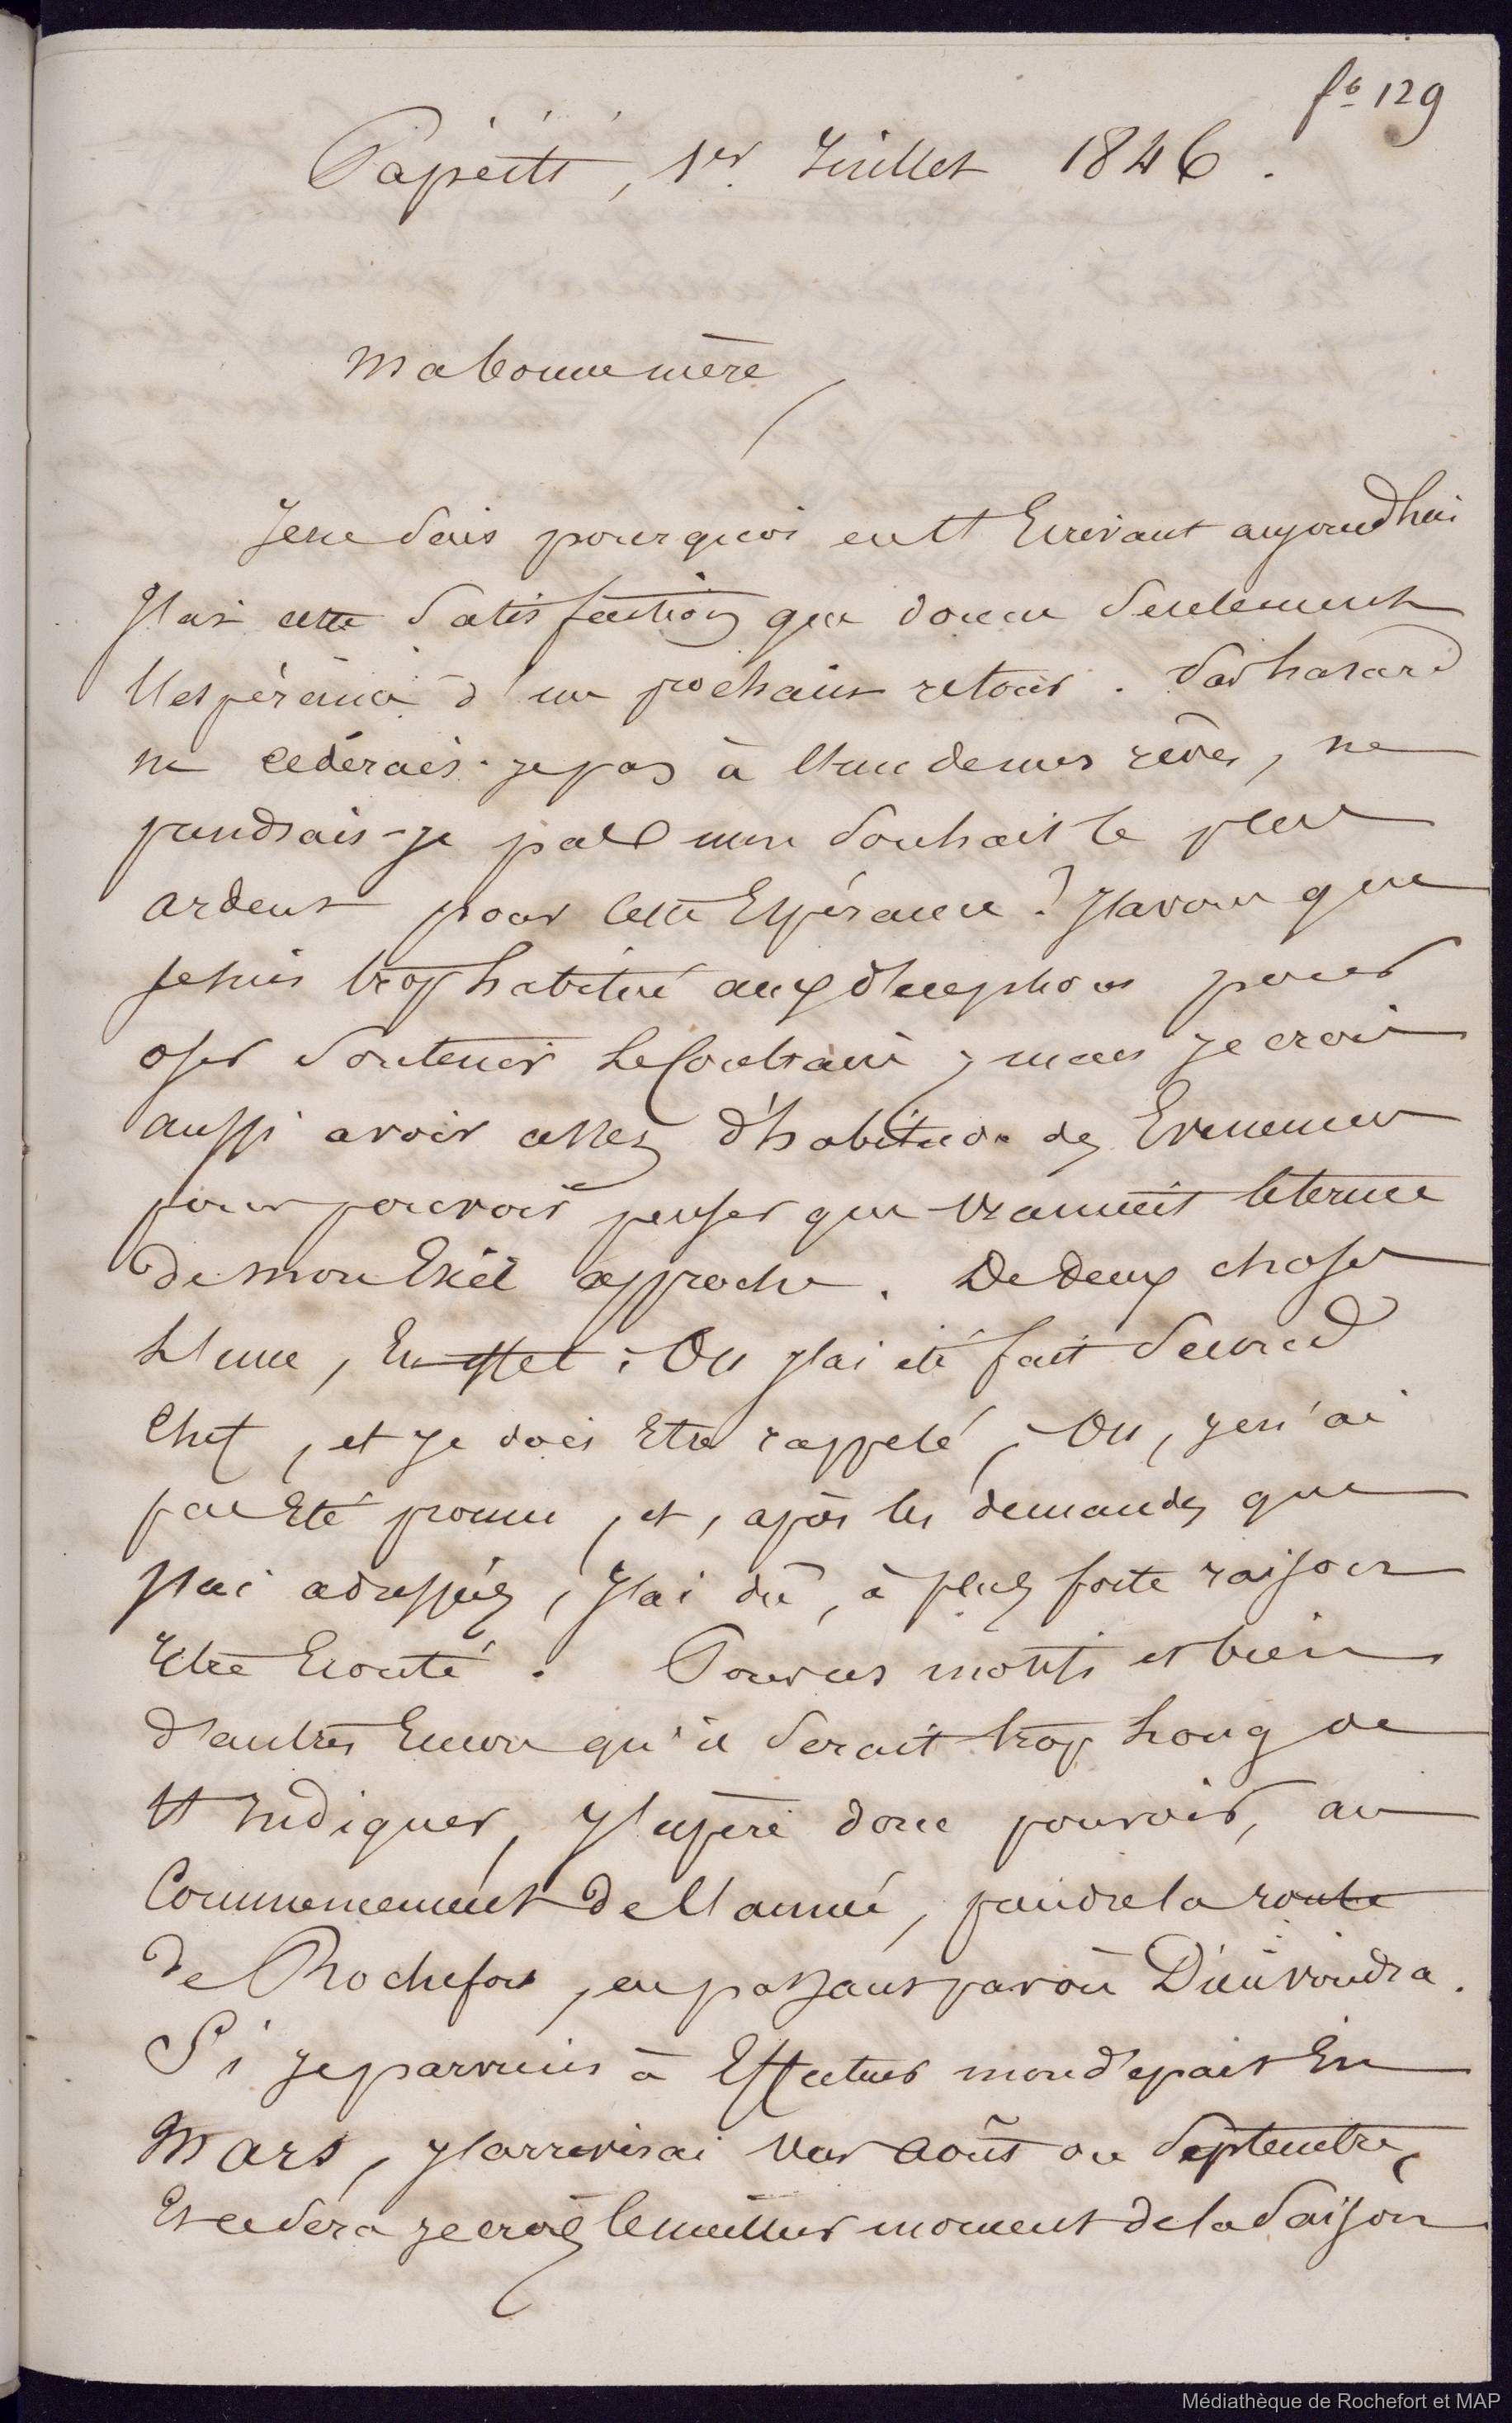 fo 129
Papéiti, 1er Juillet 1846.
Ma bonne mère,
Je ne sais pourquoi en t'Ecrivant aujourd'hui
J'ai cette satisfaction que donne seulement
l'espérance d'un prochain retour. Par hasard
ne cedérais-je pas à l'un de mes rêves, ne
prendrais-je pas mon souhait le plus
ardent pour cette Espérance? J'avoue que
je suis trop habitué aux déceptions pour
oser soutenir le Contraire; mais je crois
aussi avoir assez d'habitude des Evenemens
pour pouvoir penser que vraiment le terme
de mon Exil approche. De deux choses
L'une, En effet: Ou j'ai été fait second
Chef, et je dois Etre rappelé; Ou, je n'ai
pas Eté promu, et, après les demandes que
j'ai adressées, J'ai dû, à plus forte raison
Etre Ecouté. Pour ces motifs et bien
d'autres Encore qu'il serait trop long de
t'Indiquer, J'espère donc pouvoir, au
Commencement de l'année, prendre la route
de Rochefort, en passant par où Dieu voudra.
Si je parviens à Effectuer mon départ En
Mars, J'arriverai vers Août ou Septembre,
Et ce sera je crois le meilleur moment de la saison
Médiathèque de Rochefort et MAP